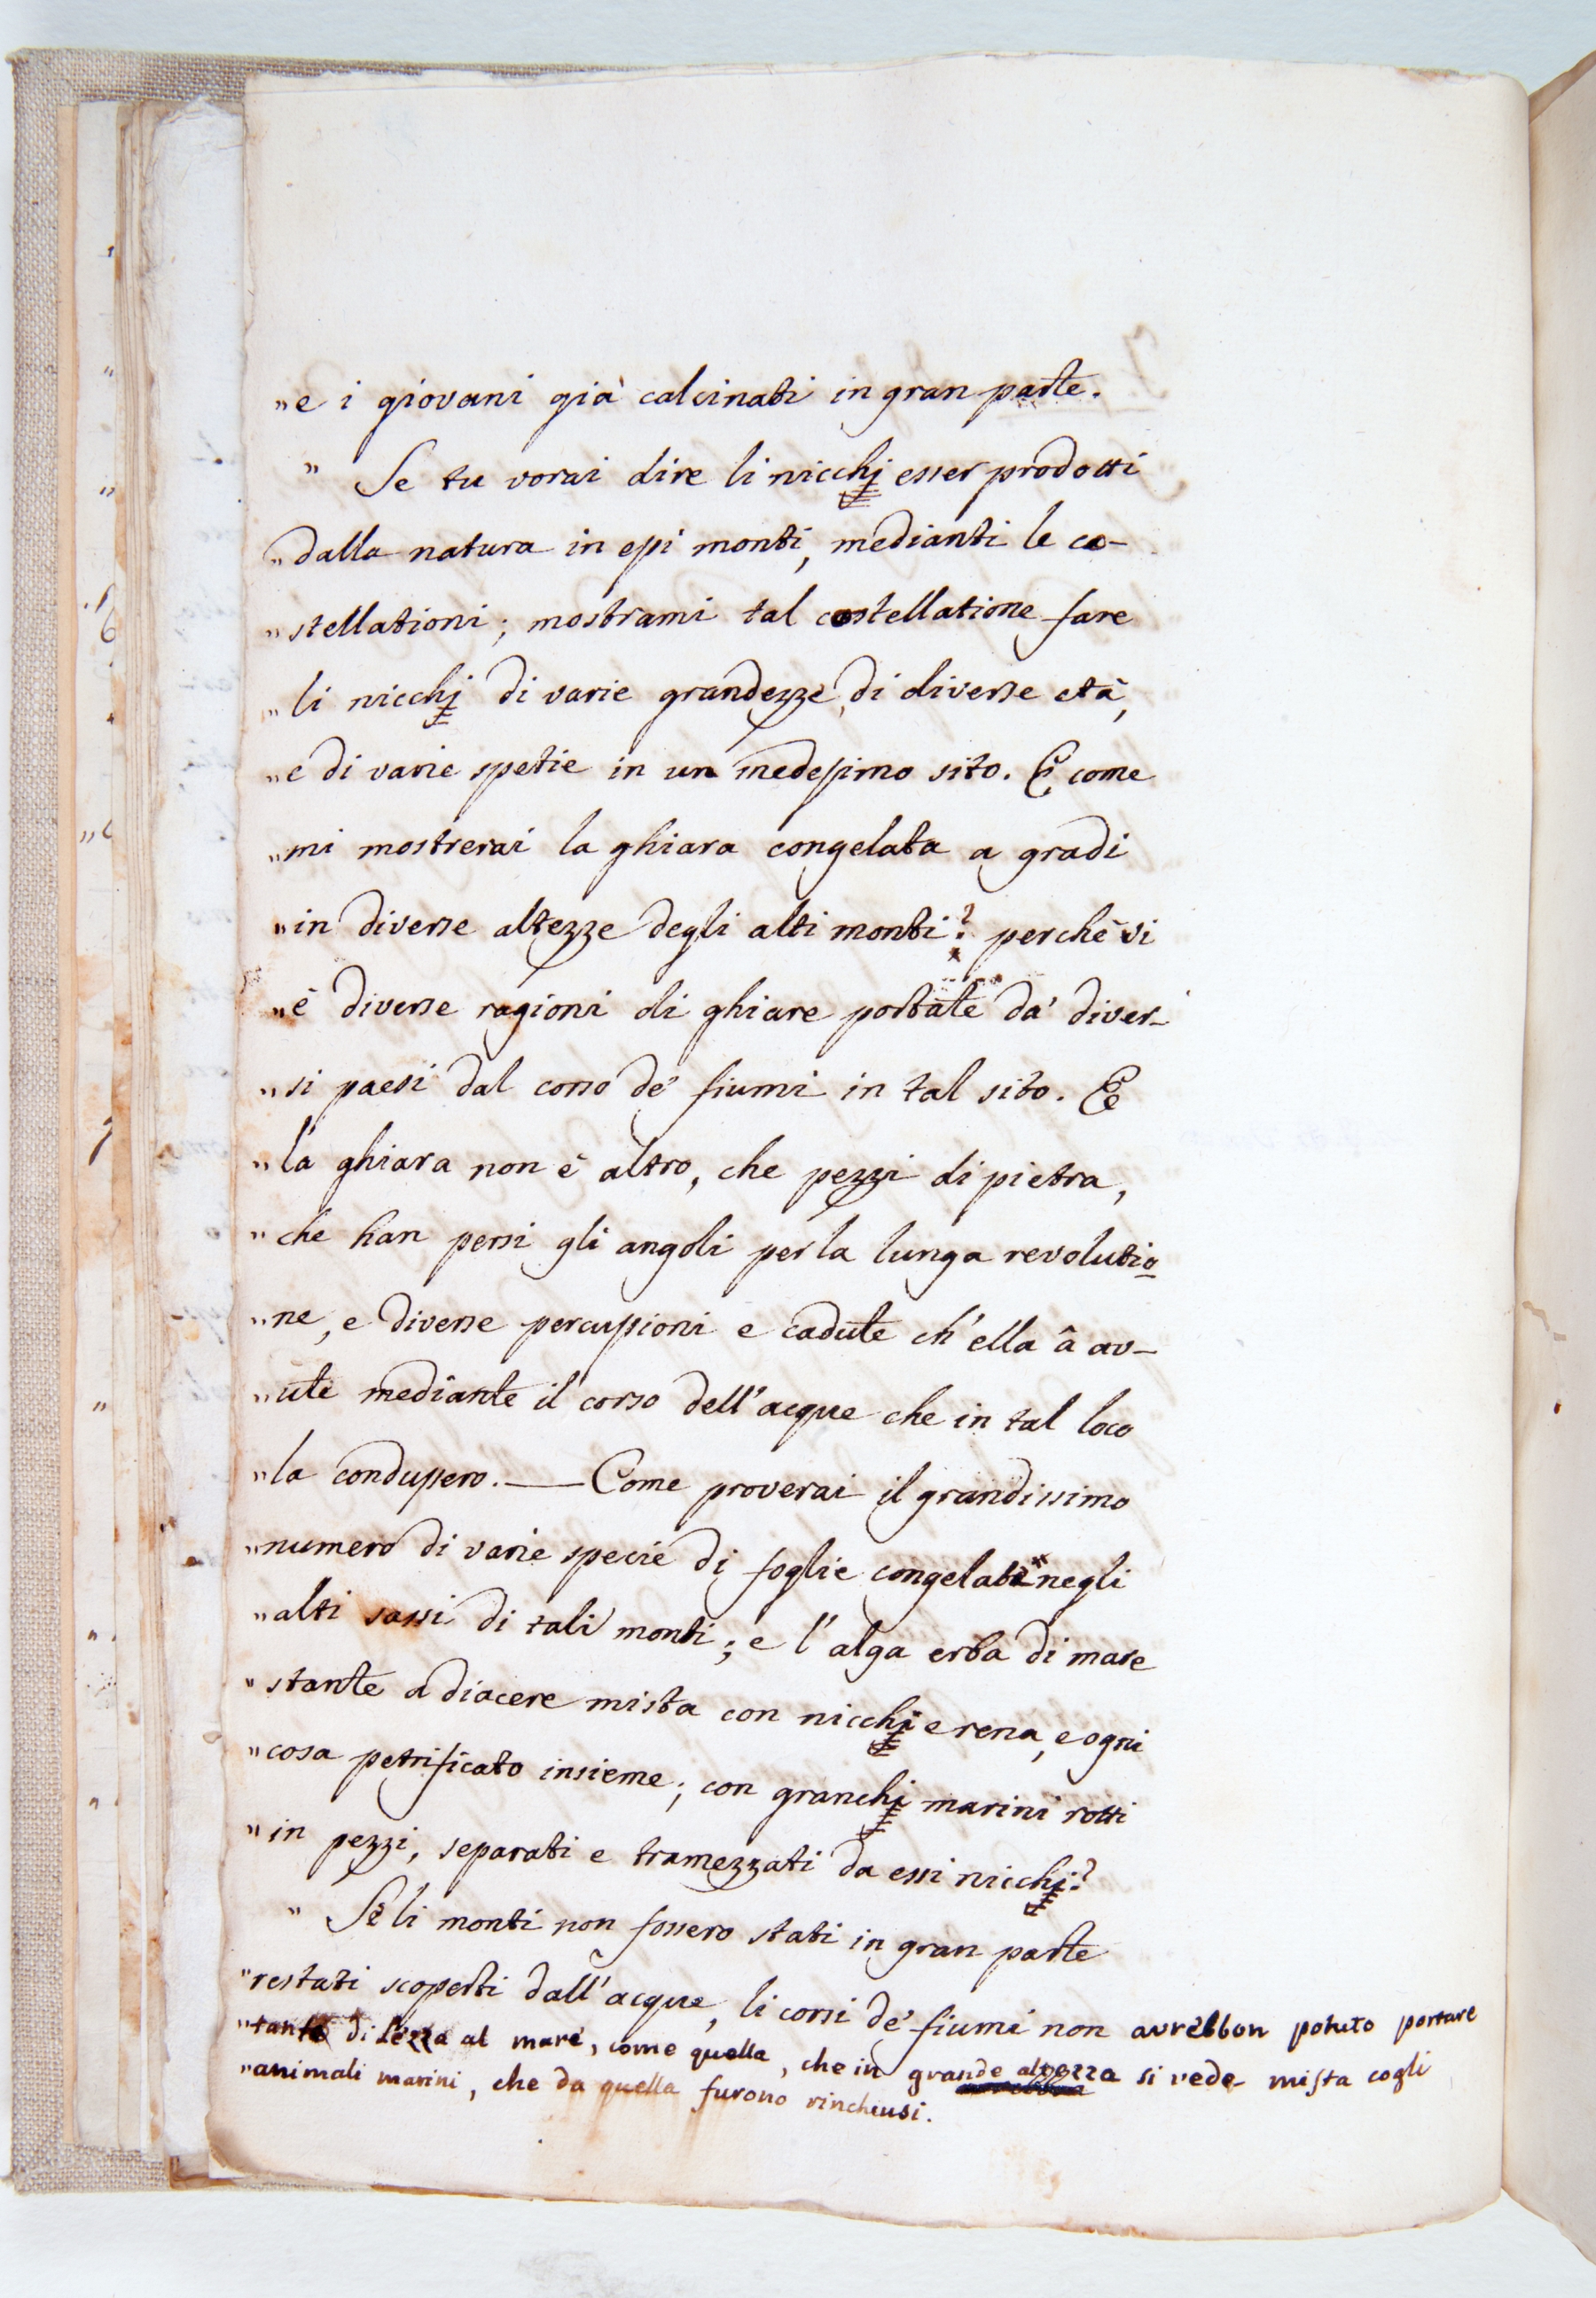 "e i giovani già calcinati in gran parte.
" Se tu vorai dire li nicchj esser prodotti
"dalla natura in essi monti, medianti le co-
"stellationi; mostrami tal costellatione fare
"li nicchj di varie grandezze, di diverse età,
"e di varie spetie in un medesimo sito. E come
"mi mostrerai la ghiara congelata a gradi
"in diverse altezze degli alti monti? perchè vi
"è diverse ragioni di ghiare portate da' diver-
"si paesi dal corso de' fiumi in tal sito. E
"la ghiara non è altro, che pezzi di pietra,
"che han persi gli angoli per la lunga revolutio
"ne, e diverse percussioni e cadute ch'ella â av-
"ute mediante il corso dell'acque che in tal loco
"la condussero. — Come proverai il grandissimo
"numero di varie specie di foglie congelate* negli
"alti sassi di tali monti; e l'alga erba di mare
"stante a diacere mista con nicchi e rena, e ogni
"cosa petrificato insieme; con granchi marini rotti
"in pezzi, separati e tramezzati da essi nicchi?
" Se li monti non fossero stati in gran parte
"restati scoperti dall'acque, li corsi de' fiumi non avrebbon potuto portare
"tanto di lezza al mare, come quella, che in grande altezza si vede mista cogli
"animali marini, che da quella furono rinchiusi.